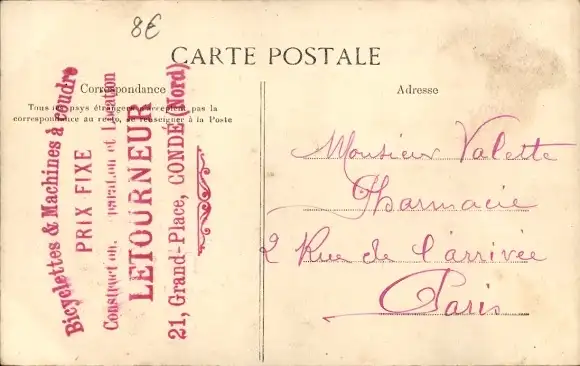 8€
CARTE POSTALE
Correspondance
Tous les pays étrangers n'acceptent pas la
correspondance au recto, se renseigner à la Poste
Bicyclettes & Machines à coudre
PRIX FIXE
Construction, Réparation et Location
LETOURNEUR
21, Grand-Place, CONDÉ (Nord)
Adresse
Monsieur Valette
Pharmacie
2 Rue de l'arrivée
Paris